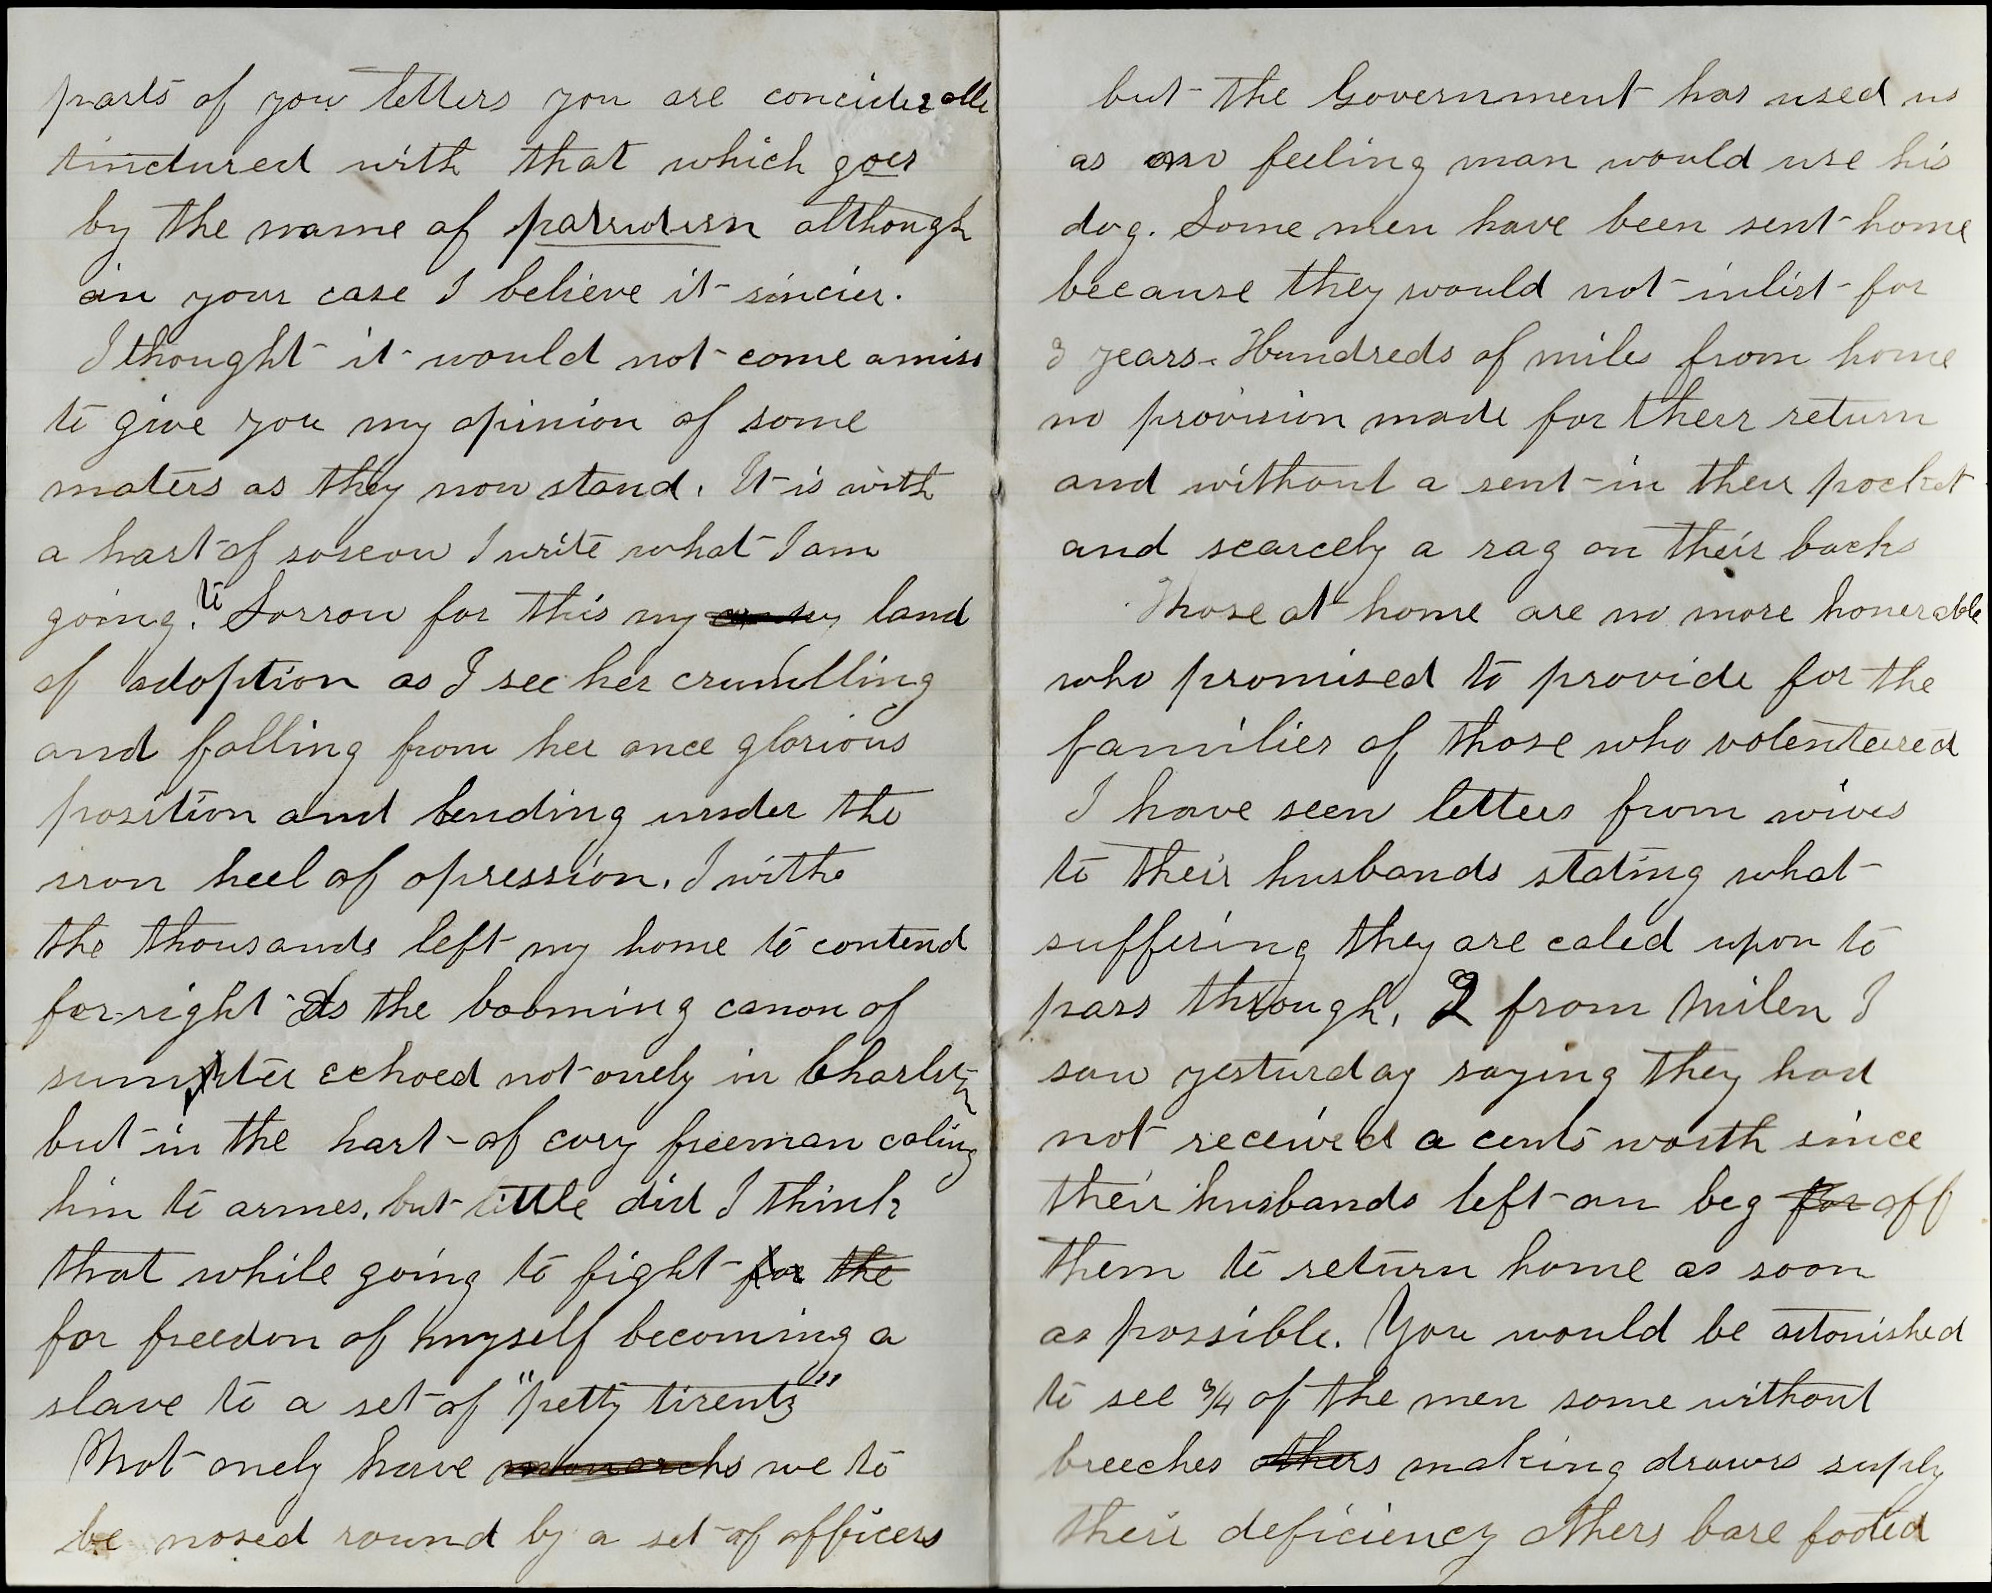 parts of your letters you are conciderable
tinctured with that which goes
by the name of patriotism although
in your case I believe it sincier.
I thought it would not come amiss
to give you my opinion of some
maters as they now stand. It is with
a hart of sorrow I write what I am
going to. Sorrow for this my land
of adoption as I see her crumbling
and falling from her once glorious
position and bending under the
iron heel of opression. I withe
the thousands left my home to contend
for right As the booming canon of
sumpter echoed not onely in Charlston
but in the hart of evry freeman caling
him to armes. but little did I think
that while going to fight for the
for freedon of myself becoming a
slave to a set of "petty tirents"
Not onely have monarchs we to
be nosed round by a set of officers
but the Government has used us
as no feeling man would use his
dog. Some men have been sent home
because they would not inlist for
3 years. Hundreds of miles from home
no provision made for their return
and without a sent in their pocket
and scarcely a rag on their backs
Those at home are no more honerable
who promised to provide for the
families of those who volenteered
I have seen letters from wives
to their husbands stating what
suffering they are caled upon to
pass through. 2 from Milen I
saw yesturday saying they had
not received a cents worth since
their husbands left an beg for off
them to return home as soon
as possible. You would be astonished
to see 3/4 of the men some without
breeches others making drawrs suply
their deficiency others bare footed